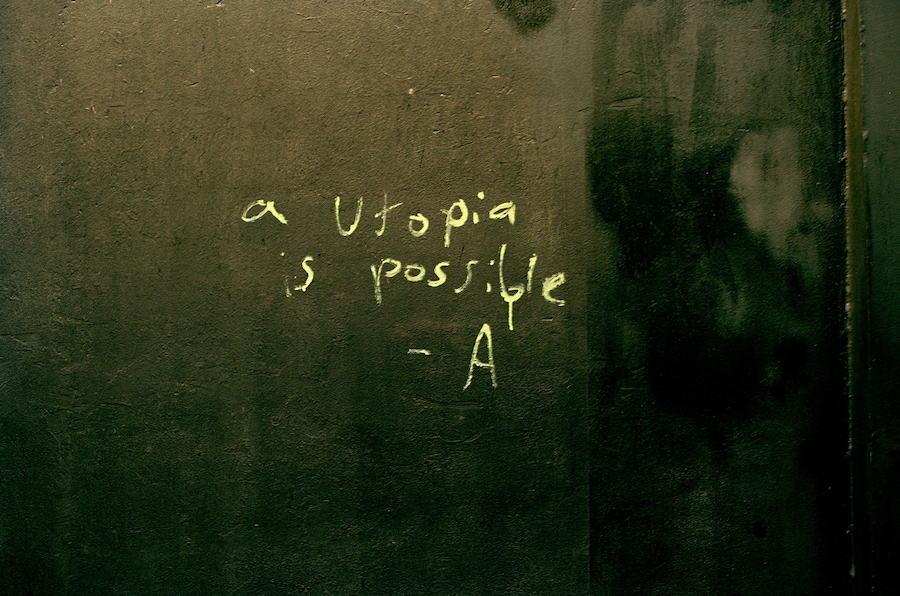 a Utopia
is possible
- A